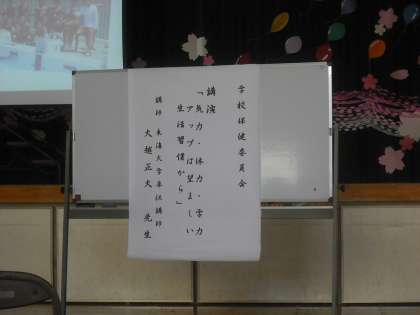 学校保健委員会
講演
「気力・体力・学力
アップは望ましい
生活習慣から」
講師 東海大学専任講師
大越正大 先生